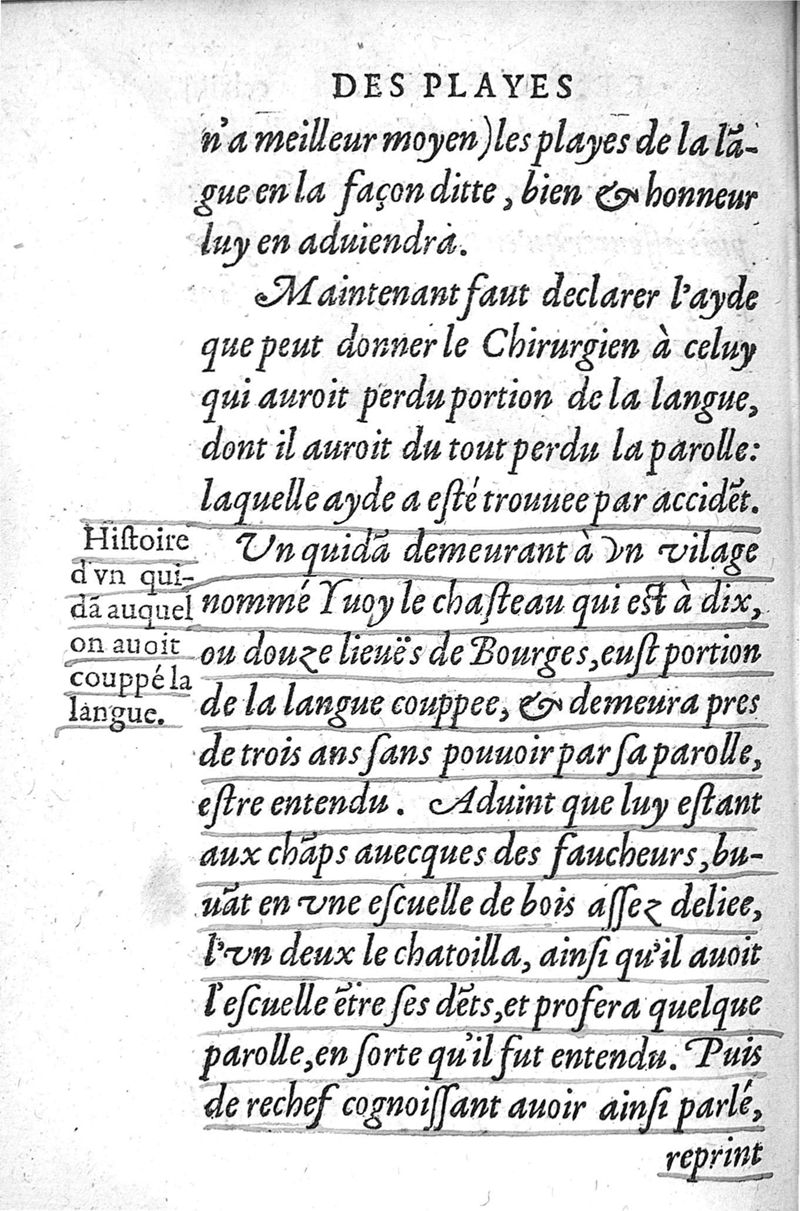 DES PLAYES
n'a meilleur moyen) les playes de la lā-
gue en la façon ditte, bien & honneur
luy en aduiendra.
Maintenant faut declarer l'ayde
que peut donner le Chirurgien à celuy
qui auroit perdu portion de la langue,
dont il auroit du tout perdu la parolle:
laquelle ayde a eſté trouuee par accidēt.
Histoire
d'vn qui-
dā auquel
on auoit
couppé la
langue.
Vn quidā demeurant à vn vilage
nommé Yuoy le chaſteau qui est à dix,
ou douze lieuës de Bourges, euſt portion
de la langue couppee, & demeura pres
de trois ans ſans pouuoir par ſa parolle,
eſtre entendu. Aduint que luy eſtant
aux chāps auecques des faucheurs, bu-
uāt en vne eſcuelle de bois aſſez deliee,
l'vn deux le chatoilla, ainſi qu'il auoit
l'eſcuelle ētre ſes dēts, et profera quelque
parolle, en ſorte qu'il fut entendu. Puis
de rechef cognoiſſant auoir ainſi parlé,
reprint